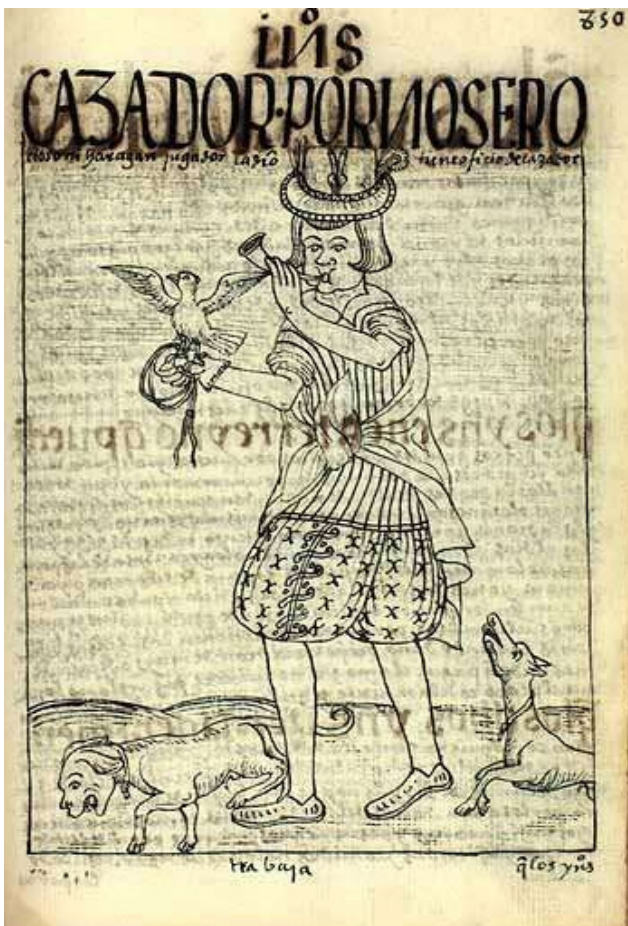 850
INoS
CAZADOR·POR NO SER O
cioso ni haragan jugador ladro tiene oficio de cazador
trabaja
q̃ los yno̊s